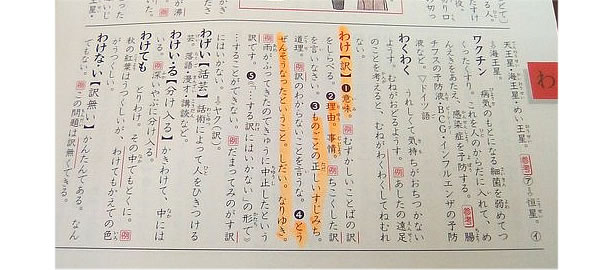 わ
天王星・海王星・めい王星。参考㋐恒星。㋑
海王星。
ワクチン 病気のもとになる細菌を弱めてつ
くったくすり。これを人のからだに入れて、め
んえきをあたえ、感染症を予防する。参考腸
チフスの予防液・BCG・インフルエンザの予防
液など。▽ドイツ語
わくわく うれしくて気持ちがおちつかない
ようす。むねがおどるようす。例あしたの遠足
のことを考えると、むねがわくわくしてねむれ
ない。
わけ【訳】❶意味。例むずかしいことばの訳
をしらべる。❷理由。事情。例ちこくした訳
を言いなさい。❸ものごとの正しいすじみち。
道理。例訳のわからないことを言うな。❹とう
ぜんそうなったということ。しだい。なりゆき。
例雨がふってきたのできゅうに中止したという
訳です。❺《「…する訳にはいかない」の形で》
…することができない。例だまってみのがす訳
にはいかない。 ヤク(訳)。
わげい【話芸】話術によって人をひきつける
芸。落語・漫才・講談など。
わけいる【分け入る】かきわけて、中には
いる。例深いやぶに分け入る。
わけても とりわけ。その中でもとくに。例
秋の紅葉はうつくしいが、わけてもかえでの色
がうつくしい。
わけない【訳無い】かんたんである。なん
でもない。例この問題は訳無くできる。